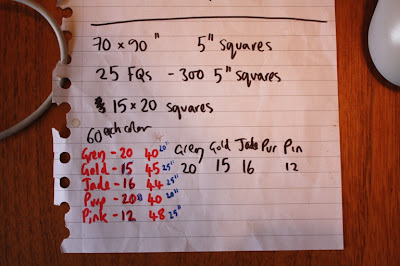 70 x 90" 5" squares
25 FQs - 300 5" squares
15 x 20 squares
60 each color
Gren Gold Jade Pur Pin
Gren - 20 40 20"
Gold - 15 45 25" 20 15 16 12
Jade - 16 44 25"
Purp - 20 40 20"
Pink - 12 48 25"